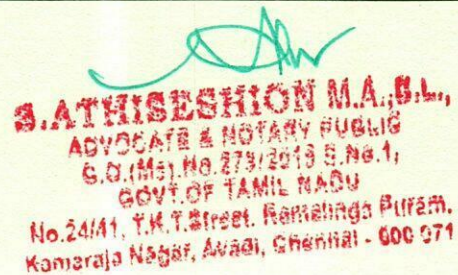 S.ATHISESHION M.A.,B.L.,
ADVOCATE & NOTARY PUBLIC
G.O.(Ms).No.279/2013 S.No.1,
GOVT.OF TAMIL NADU
No.24/41, T.K.T.Street, Ramalinga Puram,
Kamaraja Nagar, Avadi, Chennai - 600 071